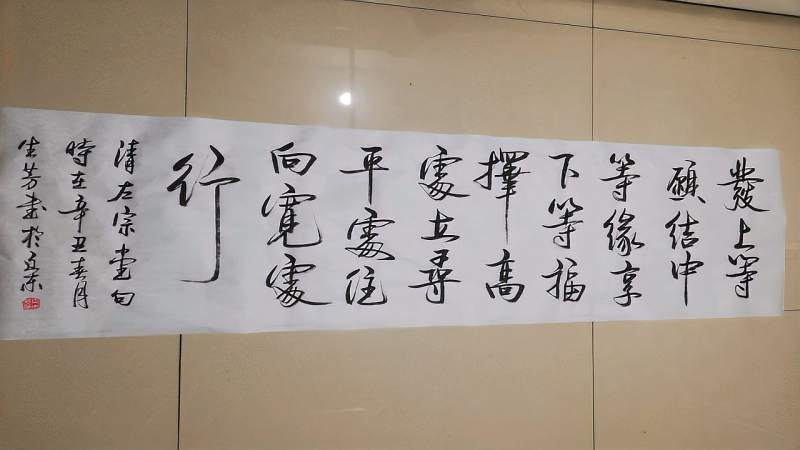 發上等
願結中
等缘享
下等福
擇高
處立尋
平處住
向寬處
行
清左宗堂句
時在辛丑春月
生芳書於